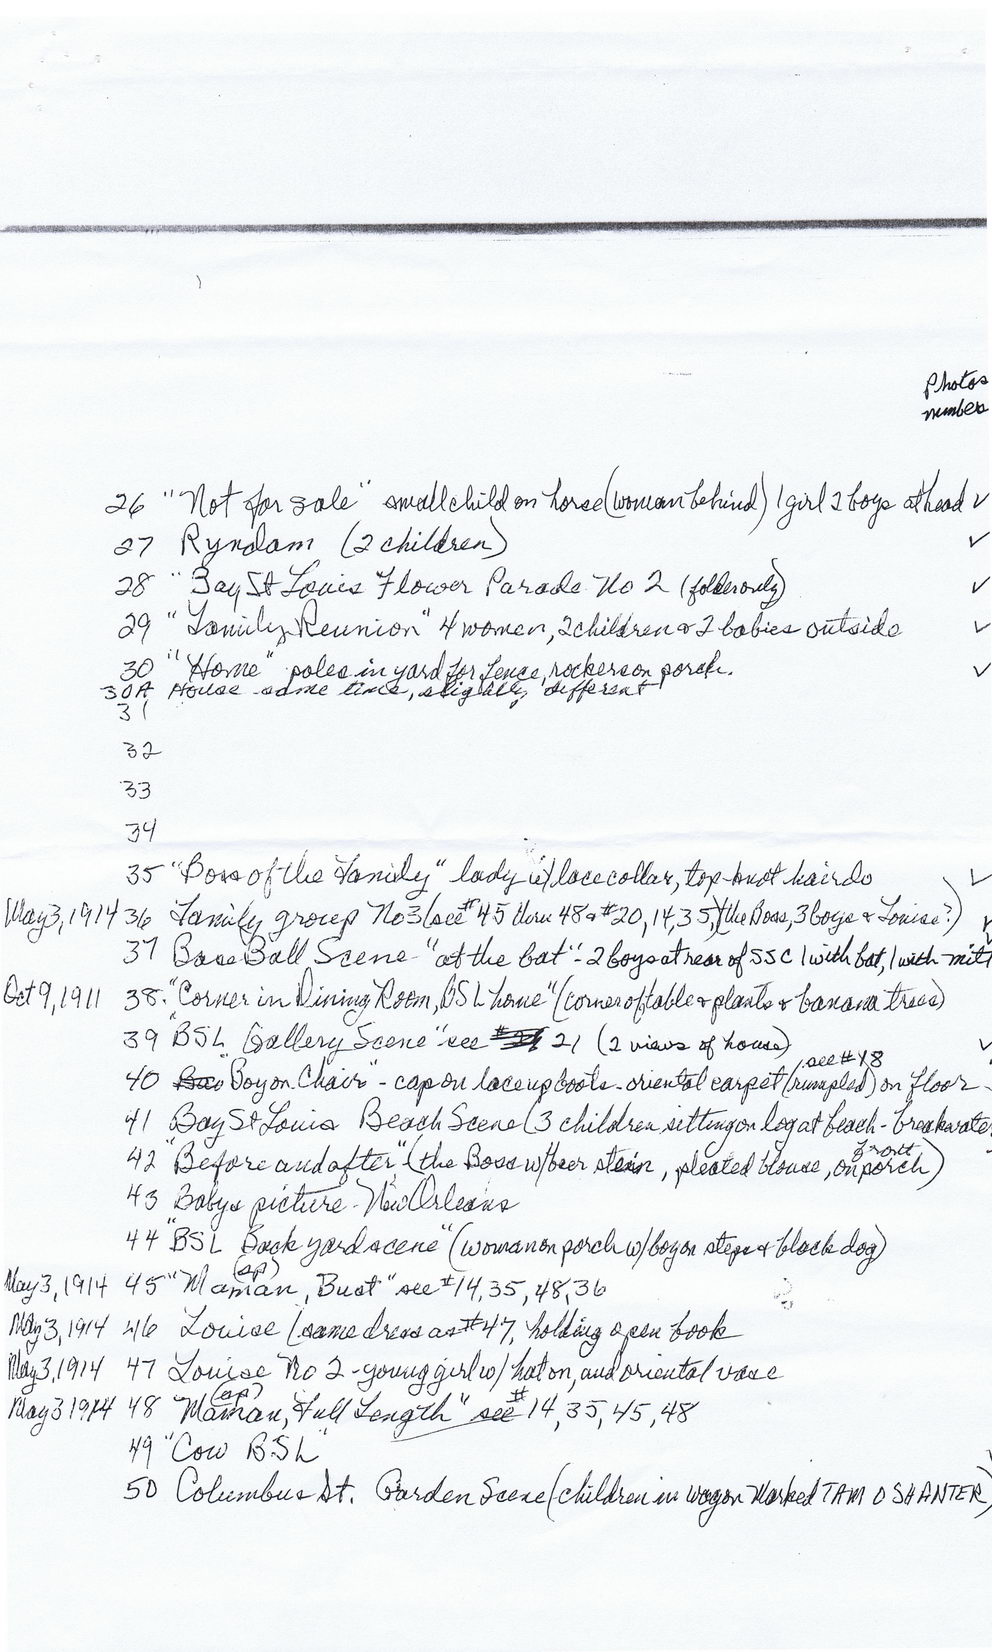 Photos
number
26 "Not for sale" small child on horse (woman behind) 1 girl 2 boys at head ✓
27 Ryndam (2 children) ✓
28 "Bay St Louis Flower Parade No 2 (folder only) ✓
29 "Family Reunion" 4 women, 2 children & 2 babies outside ✓
30 "Home" poles in yard for fence, rockers on porch. ✓
30A House same time, slightly different
31
32
33
34
35 "Boss of the Family" lady w/ lace collar, top-knot hairdo ✓
May 3, 1914 36 Family group No 3 (see #45 thru 48 & #20, 14, 35,) (the Boss, 3 boys & Louise?) ✓
37 Base Ball Scene "at the bat" - 2 boys at rear of SSC 1 with bat, 1 with mitt
Oct 9, 1911 38. "Corner in Dining Room, BSL home" (corner of table & plants & banana trees)
39 "BSL Gallery Scene" see 21 (2 views of house) ✓
see #48
40 Boy on Chair" - cap on lace up boots - oriental carpet (rumpled) on floor
41 Bay St Louis Beach Scene (3 children sitting on log at beach - breakwater
front
42 "Before and after" (the Boss w/ beer stein, pleated blouse, on porch)
43 Babys picture - New Orleans
44 "BSL Back yard scene" (woman on porch w/ boy on steps & black dog)
(sp)
May 3, 1914 45 "Maman, Bust" see #14, 35, 48, 36
May 3, 1914 46 Louise (same dress as #47, holding open book
May 3, 1914 47 Louise No 2 - young girl w/ hat on, and oriental vase
(sp)
May 3 1914 48 "Maman, Full Length" see #14, 35, 45, 48
49 "Cow BSL"
50 Columbus St. Garden Scene (children in wagon Marked TAM O SHANTER)